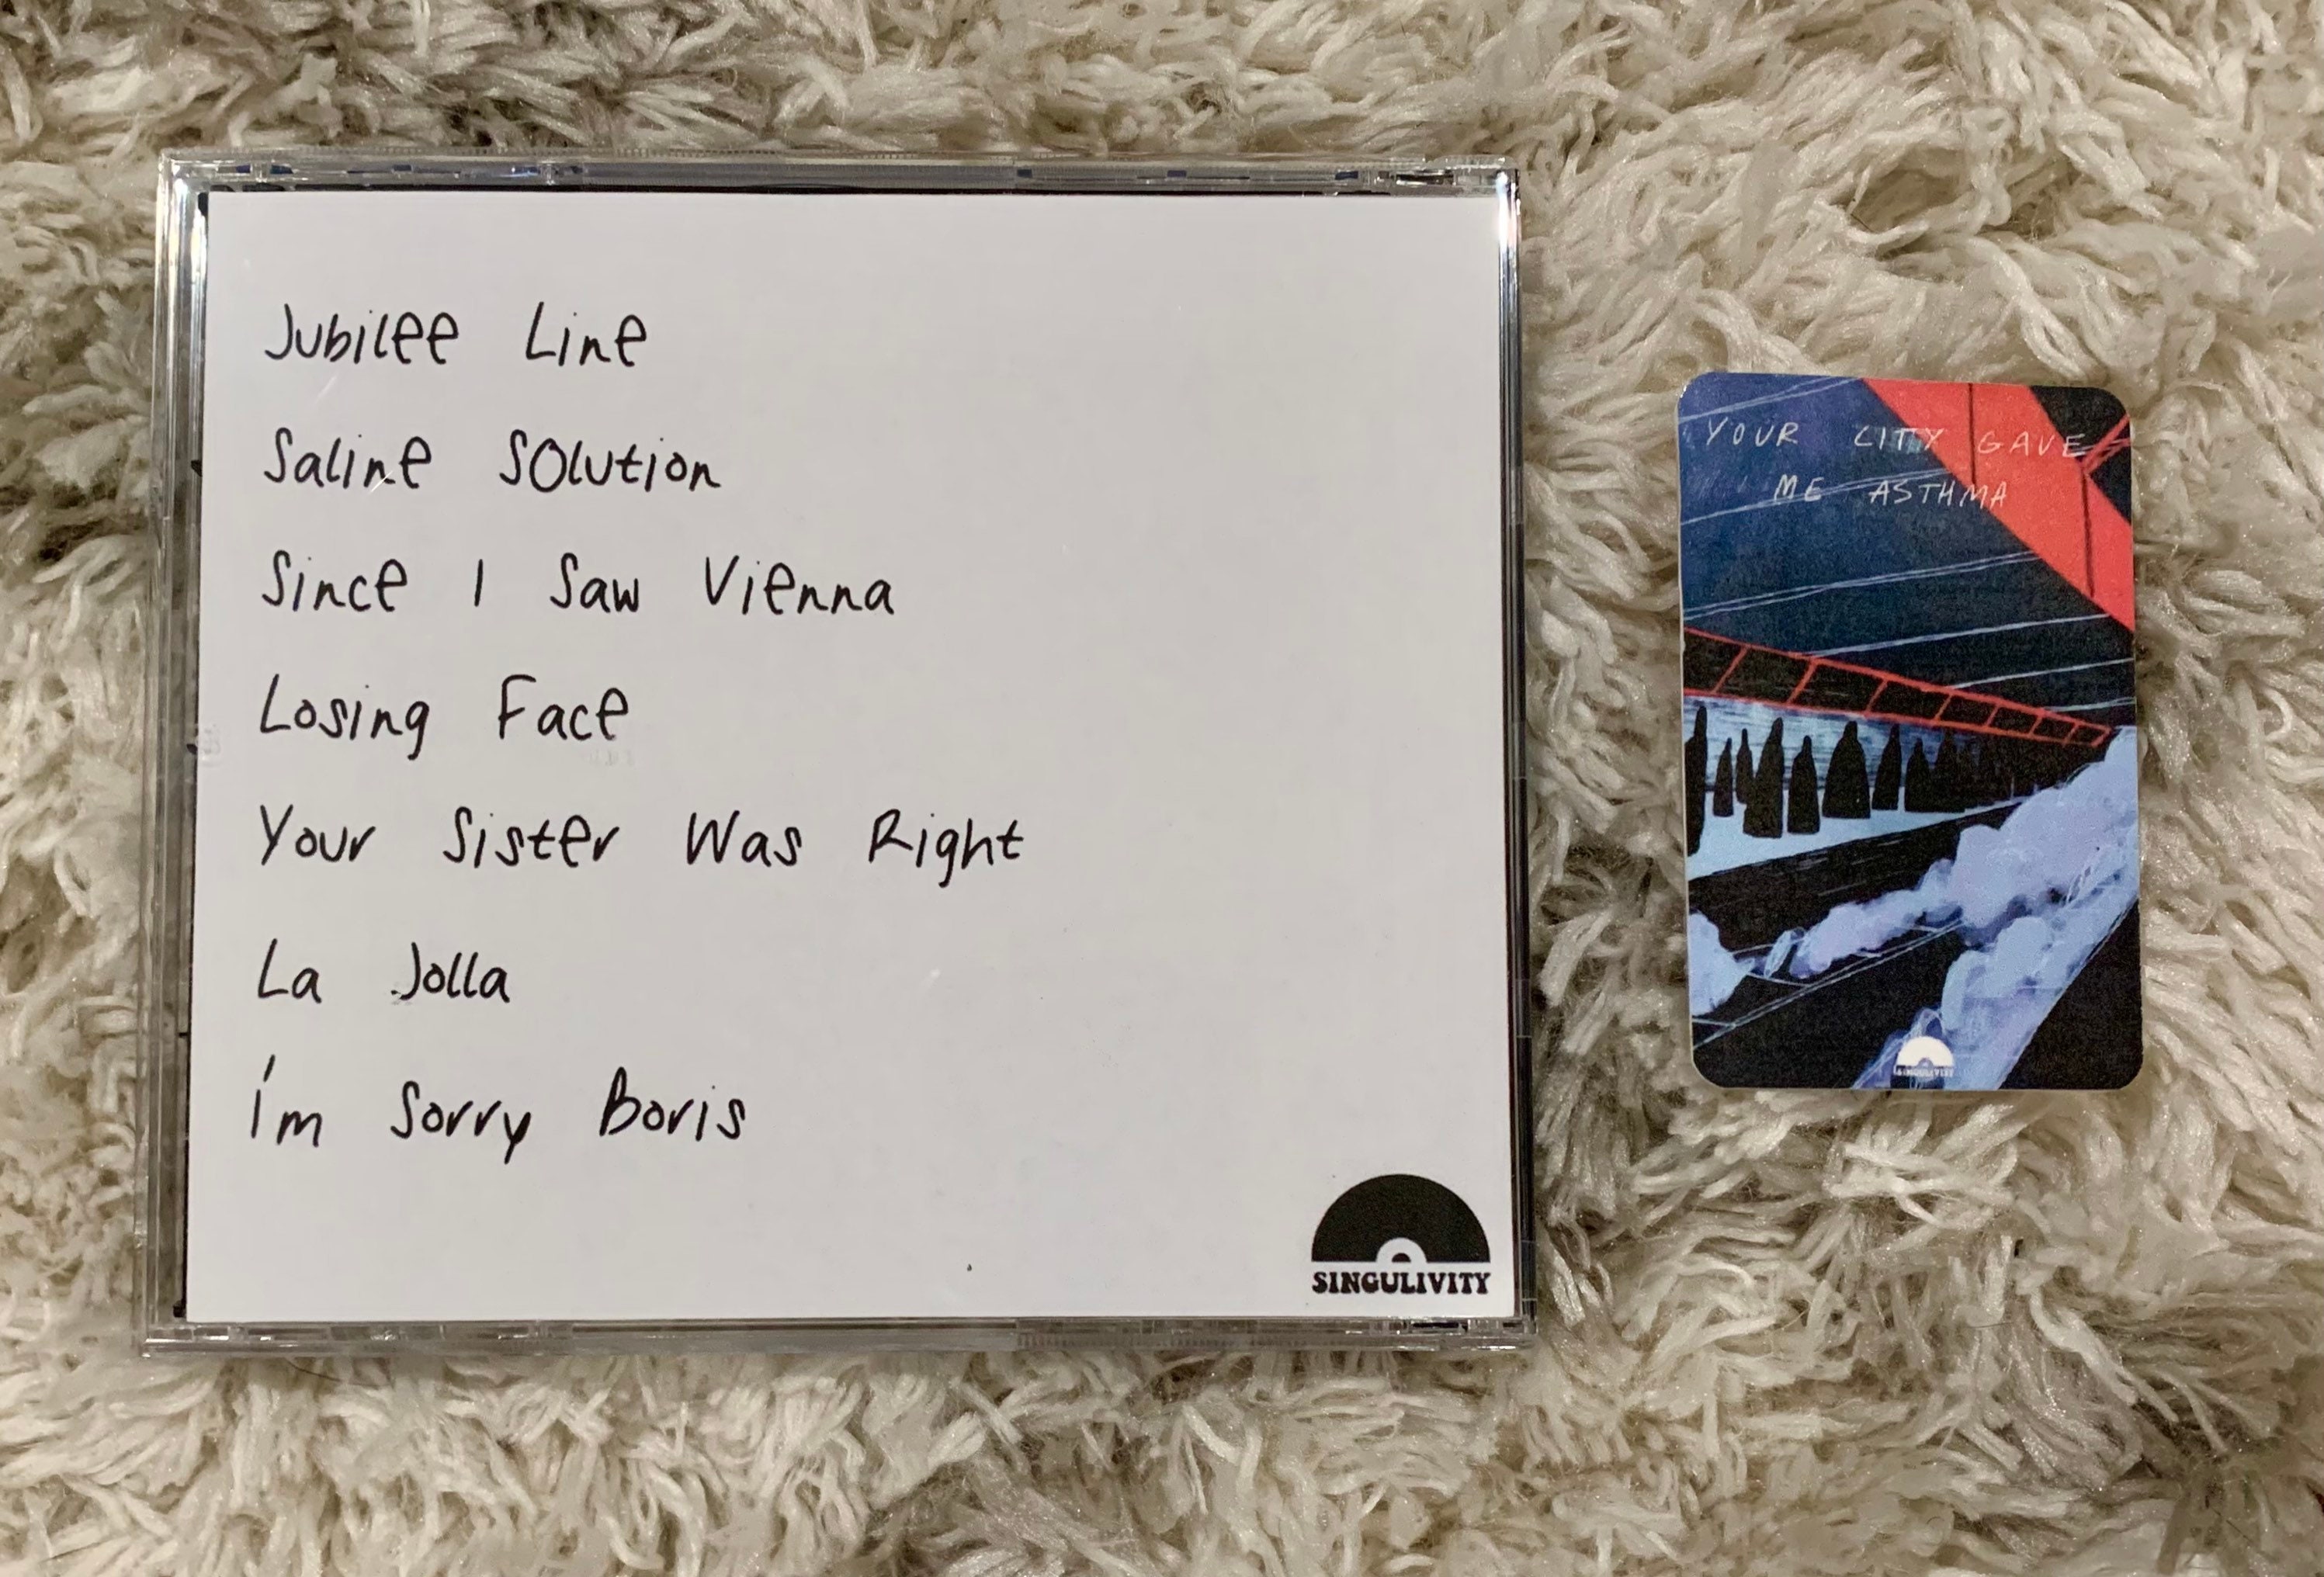 Jubilee Line
Saline Solution
Since I Saw Vienna
Losing Face
Your Sister Was Right
La Jolla
I'm Sorry Boris
SINGULIVITY
YOUR CITY GAVE
ME ASTHMA
SINGULIVITY